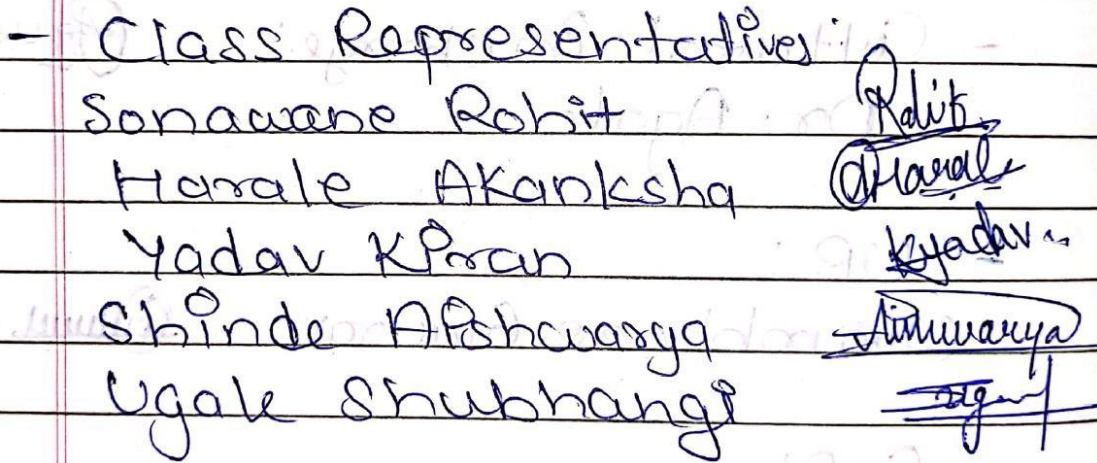 - Class Representatives :
Sonawane Rohit Rohit
Harale Akanksha AHarale
Yadav Kiran Kyadav
Shinde Aishwarya Aishwarya
Ugale Shubhangi